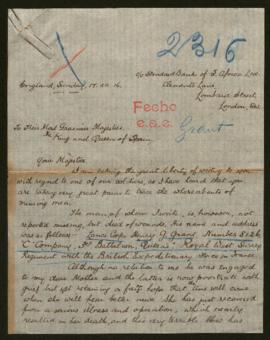 2316
c/o Standard Bank of S. Africa Ltd.
Clements Lane,
Lombard Street,
London, E.C.
England, Sunday, 17.
Fecho
e.a.c.
Grant
To Their Most Gracious Majesties,
The King and Queen of Spain
Your Majesties
I am taking the great liberty of writing to you
with regard to one of our soldiers, as I have heard that you
are taking very great pains to trace the whereabouts of
missing men.
The man of whom I write is, however, not
reported missing, but died of wounds, his name and address
was as follows:- Lance Corp. Grant, Number
"C" Company, Battalion, "Queens" Royal West Surrey
Regiment with the British Expeditionary Force in France.
Although no relation to me he was engaged
to my dear and the latter is now prostrate with
grief but yet retaining a faint hope that time will come
when she will hear better news. She has just recovered
from a serious illness and operation, which nearly
resulted in her death, and this very terrible blow has